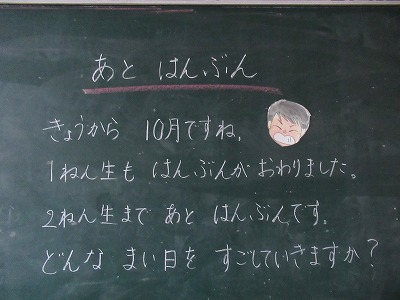 あと はんぶん
きょうから 10月ですね。
1ねん生も はんぶんが おわりました。
2ねん生まで あと はんぶんです。
どんな まい日を すごしていきますか?